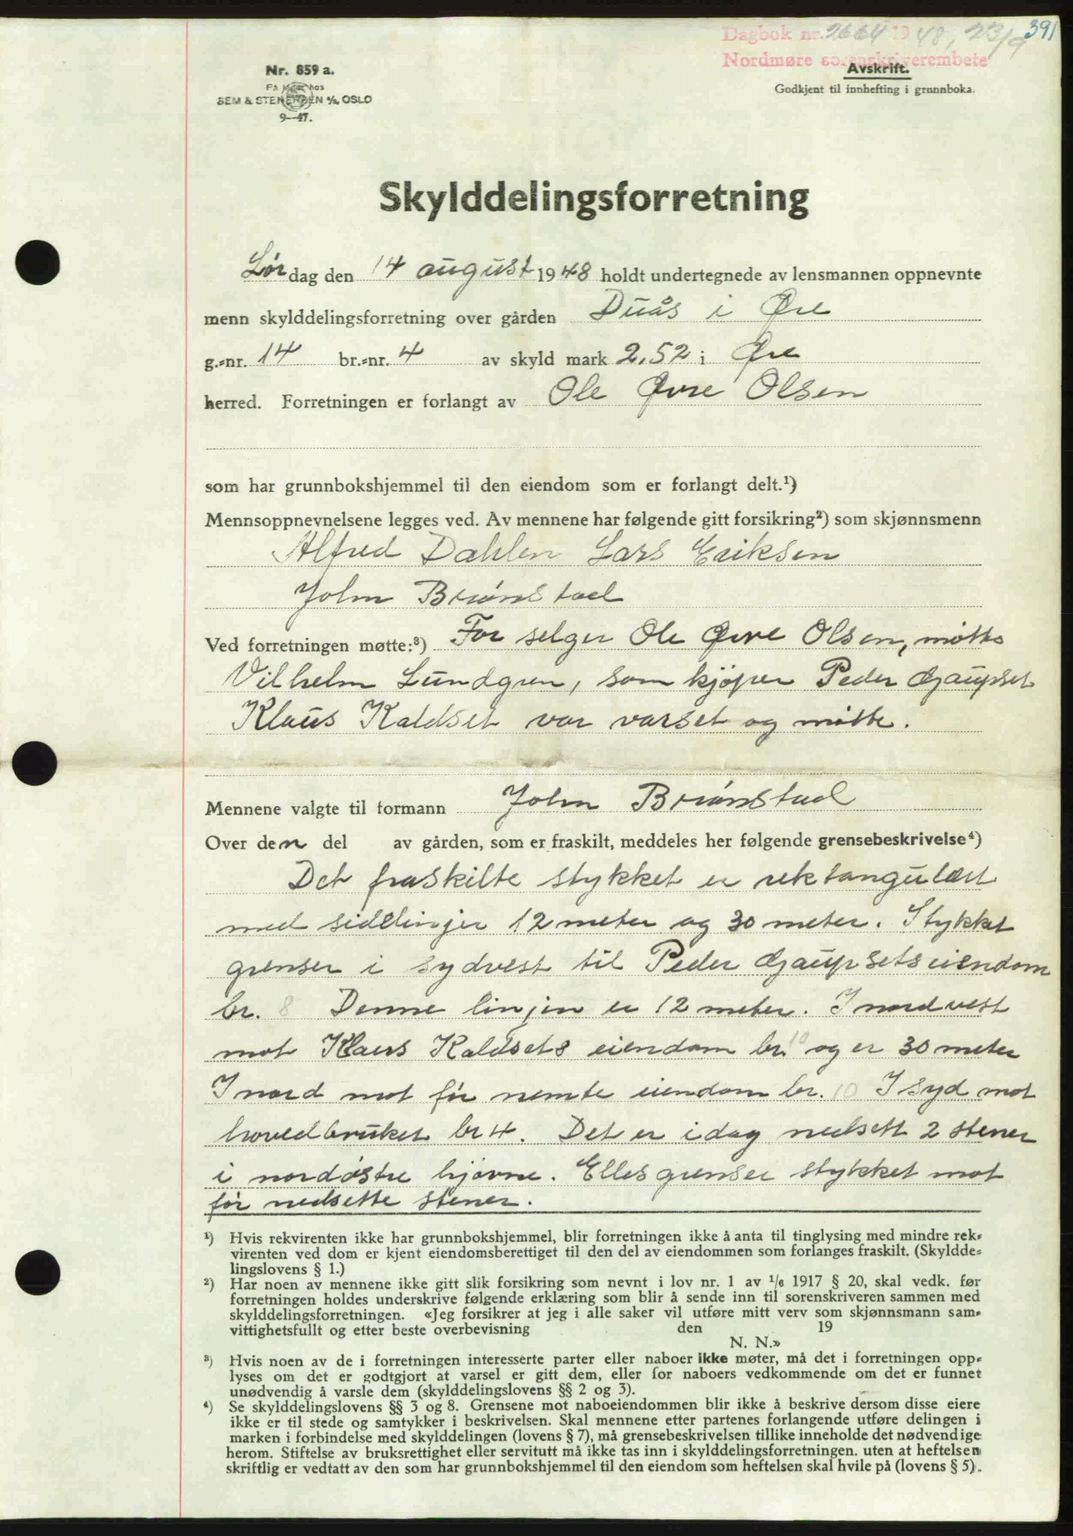 391
Dagbok nr. 2664 1948, 23/9
Nordmøre sorenskriverembete
Avskrift.
Godkjent til innhefting i grunnboka.
Nr. 859 a.
SEM & STENERSEN A/S, OSLO
9—47.
Skylddelingsforretning
Lørdag den 14 august 1948 holdt undertegnede av lensmannen oppnevnte
menn skylddelingsforretning over gården Duås i Øre
g.-nr. 14 br.-nr. 4 av skyld mark 2,52 i Øre
herred. Forretningen er forlangt av Ole Øvre Olsen
som har grunnbokshjemmel til den eiendom som er forlangt delt.¹)
Mennsoppnevnelsene legges ved. Av mennene har følgende gitt forsikring²) som skjønnsmenn
Alfred Dahlen Lars Eriksen
John Brønstad
Ved forretningen møtte:³) For selger Ole Øvre Olsen, møtte
Vilhelm Lundgren, som kjøper Peder Gjaupset
Klaus Kaldset var varset og møtte.
Mennene valgte til formann John Brønstad
Over den del av gården, som er fraskilt, meddeles her følgende grensebeskrivelse⁴)
Det fraskilte stykket er rektangulært
med sidelinjer 12 meter og 30 meter. Stykket
grenser i sydvest til Peder Gjaupsets eiendom
br. 8 Denne linjen er 12 meter. I nordvest
mot Klaus Kaldsets eiendom br. 10 og er 30 meter
I nord mot før nemte eiendom br. 10 I syd mot
hovedbruket br 4. Det er idag nedsett 2 stener
i nordøstre hjørne. Elles grenser stykket mot
før nedsette stener.
¹) Hvis rekvirenten ikke har grunnbokshjemmel, blir forretningen ikke å anta til tinglysing med mindre rek-
virenten ved dom er kjent eiendomsberettiget til den del av eiendommen som forlanges fraskilt. (Skyldde-
lingslovens § 1.)
²) Har noen av mennene ikke gitt slik forsikring som nevnt i lov nr. 1 av ¹/₆ 1917 § 20, skal vedk. før
forretningen holdes underskrive følgende erklæring som blir å sende inn til sorenskriveren sammen med
skylddelingsforretningen. «Jeg forsikrer at jeg i alle saker vil utføre mitt verv som skjønnsmann sam-
vittighetsfullt og etter beste overbevisning den 19
N. N.»
³) Hvis noen av de i forretningen interesserte parter eller naboer ikke møter, må det i forretningen opp-
lyses om det er godtgjort at varsel er gitt dem, eller for naboers vedkommende om det er funnet
unødvendig å varsle dem (skylddelingslovens §§ 2 og 3).
⁴) Se skylddelingslovens §§ 3 og 8. Grensene mot naboeiendommen blir ikke å beskrive dersom disse eiere
ikke er til stede og samtykker i beskrivelsen. Skal mennene etter partenes forlangende utføre delingen i
marken i forbindelse med skylddelingen (lovens § 7), må grensebeskrivelsen tillike inneholde det nødvendige
herom. Stiftelse av bruksrettighet eller servitutt må ikke tas inn i skylddelingsforretningen. uten at heftelsen
skriftlig er vedtatt av den som har grunnbokshjemmel til den eiendom som heftelsen skal hvile på (lovens § 5).